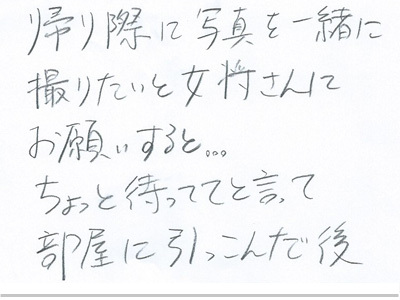 帰り際に写真を一緒に
撮りたいと女将さんに
お願いすると...
ちょっと待っててと言って
部屋に引っこんだ後